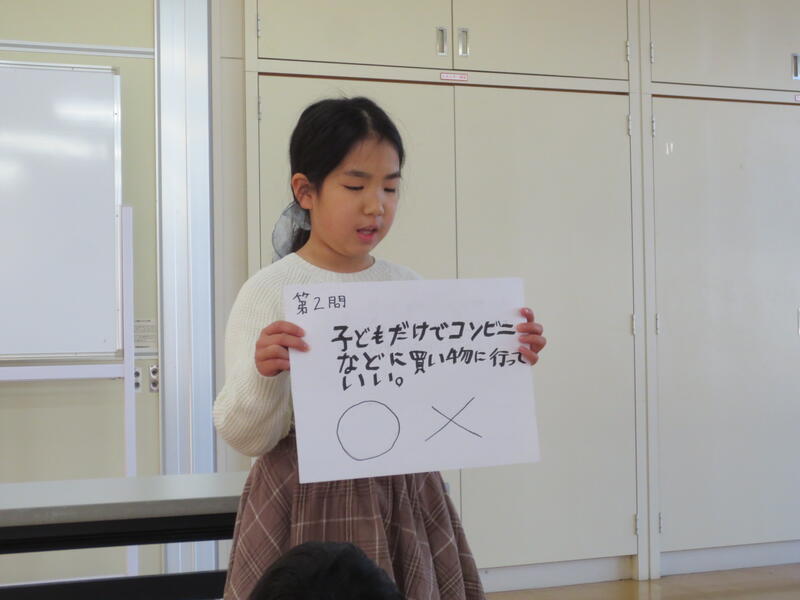 第2問
子どもだけでコンビニ
などに買い物に行って
いい。
○ ×